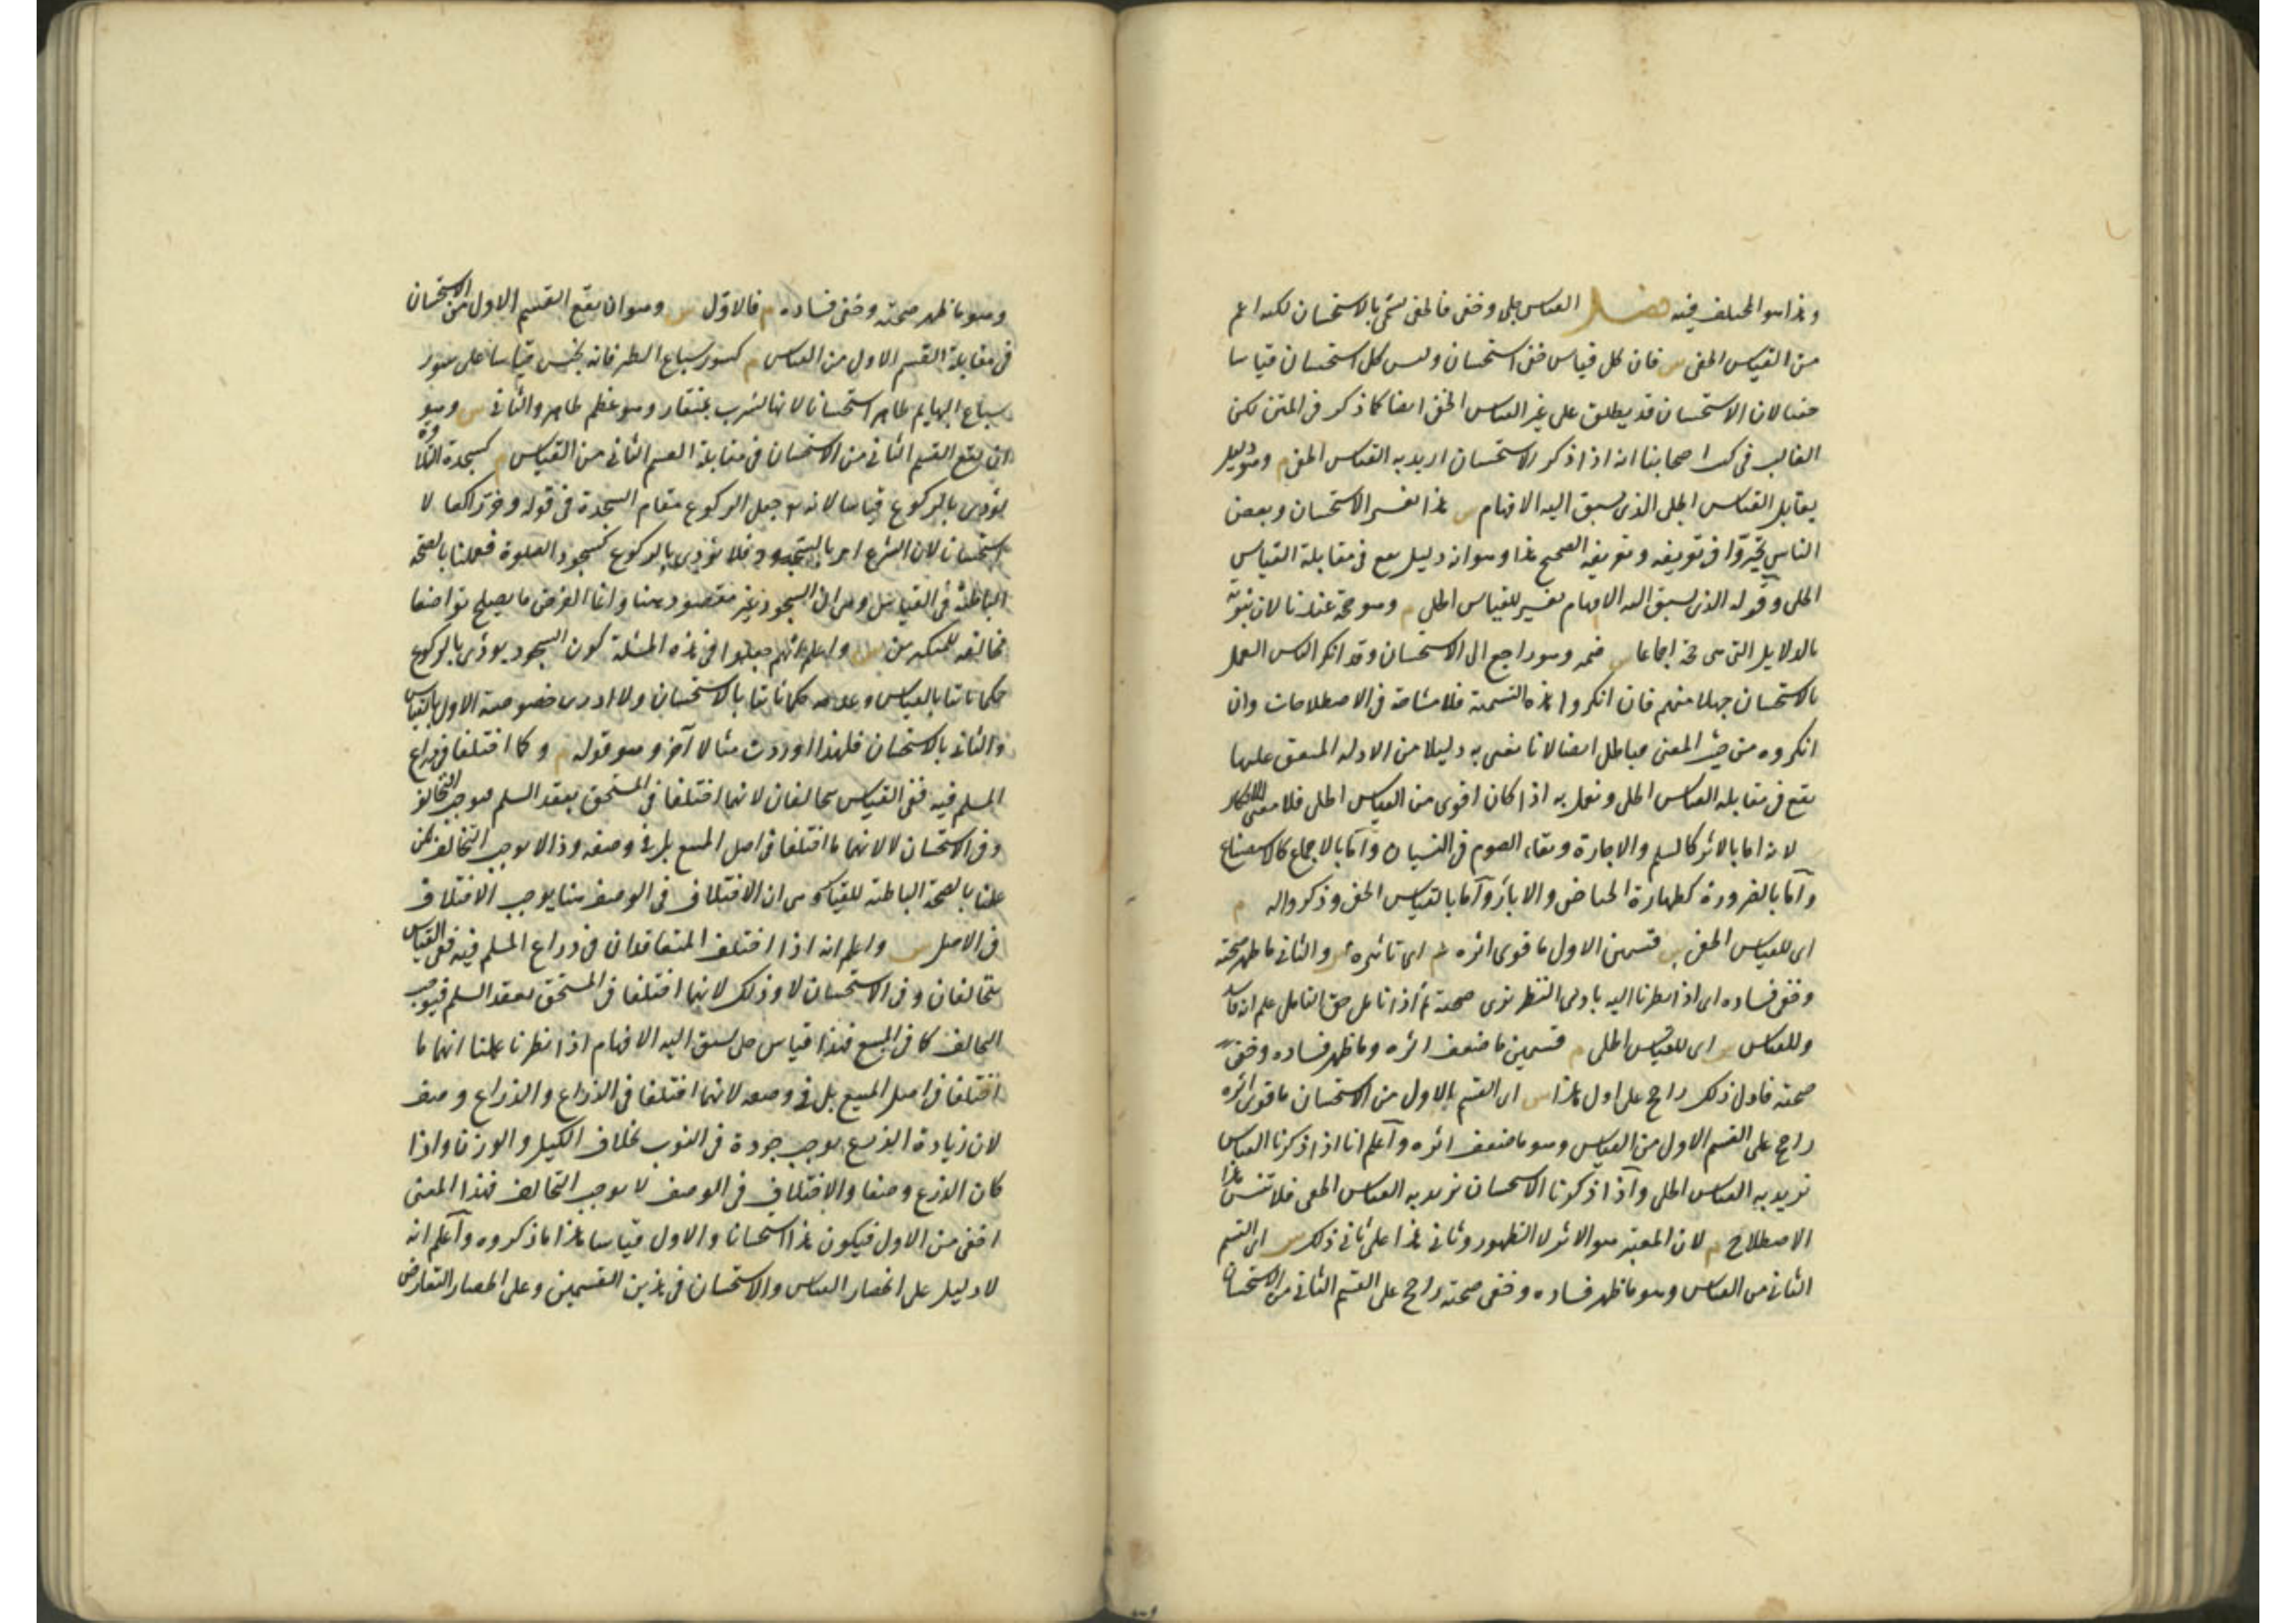 وهذا هو المختلف فيه فصل القياس جلى وخفى فالخفى يسمى بالاستحسان لكنه اعم
من القياس الخفى س فان كل قياس خفى استحسان وليس كل استحسان قياسا
خفيا لان الاستحسان قد يطلق على غير القياس الخفى ايضا كما ذكر فى المتن لكن
الغالب فى كتب اصحابنا انه اذا ذكر الاستحسان اريد به القياس الخفى م وهو دليل
يقابل القياس الجلى الذى يسبق اليه الافهام س هذا تفسير الاستحسان وبعض
الناس تحيروا فى تعريفه وتعريفه الصحيح هذا وهو انه دليل يقع فى مقابلة القياس
الجلى وقوله الذى يسبق اليه الافهام تفسير للقياس الجلى م وهو حجة عندنا لان ثبوته
بالدلايل التى هى حجة اجماعا س ضمير وهو راجع الى الاستحسان وقد انكر الناس العمل
بالاستحسان جهلا منهم فان انكروا هذه التسمية فلا مشاحة فى الاصطلاحات وان
انكروه من حيث المعنى فباطل ايضا لانا نعنى به دليلا من الادلة المتفق عليها
يقع فى مقابلة القياس الجلى ونعمل به اذا كان اقوى من القياس الجلى فلا معنى لانكاره
لانه اما بالاثر كالسلم والاجارة وبقاء الصوم فى النسيان واما بالاجماع كالاستصناع
واما بالضرورة كطهارة الحياض والابار واما بالقياس الخفى وذكروا له م
اى للقياس الخفى س قسمين الاول ما قوى اثره م اى تاثيره س والثانى ما ظهر صحته
وخفى فساده اى اذا نظرنا اليه بادى النظر نرى صحته ثم اذا تامل حق التامل علم انه فاسد
وللقياس س اى للقياس الجلى م قسمين ما ضعف اثره وما ظهر فساده وخفى
صحته فاول ذلك راجح على اول هذا س اى القسم الاول من الاستحسان ما قوى اثره
راجح على القسم الاول من القياس وهو ما ضعف اثره واعلم انا اذا ذكرنا القياس
نريد به القياس الجلى واذا ذكرنا الاستحسان نريد به القياس الخفى فلا تنس هذا
الاصطلاح م لان المعتبر هو الاثر لا الظهور وثانى هذا على ثانى ذلك س اى القسم
الثانى من القياس وهو ما ظهر فساده وخفى صحته راجح على القسم الثانى من الاستحسان
وهو ما ظهر صحته وخفى فساده م فالاول س وهو ان يقع القسم الاول من الاستحسان
فى مقابلة القسم الاول من القياس م كسور سباع الطير فانه نجس قياسا على سور
سباع البهايم طاهر استحسانا لانها تشرب بمنقار وهو عظم طاهر والثانى س وهو
ان يقع القسم الثانى من الاستحسان فى مقابلة القسم الثانى من القياس م كسجدة التلاوة
تؤدى بالركوع قياسا لانه جعل الركوع مقام السجدة فى قوله وخر راكعا لا
استحسانا لان الشرع امر بالسجود فلا تؤدى بالركوع كسجود الصلوة فعملنا بالصحة
الباطنة فى القياس وهى ان السجود غير مقصود هنا وانما الغرض ما يصلح تواضعا
مخالفة للمتكبرين س واعلم انهم جعلوا فى هذه المسئلة كون السجود يؤدى بالركوع
حكما ثابتا بالقياس وعدمه حكما ثابتا بالاستحسان ولا ادرى خصوصية الاول بالقياس
والثانى بالاستحسان فلهذا اوردت مثالا آخر وهو قوله م وكما اختلفا فى ذراع
المسلم فيه ففى القياس يتحالفان لانهما اختلفا فى المستحق بعقد السلم فيوجب التحالف
وفى الاستحسان لا لانهما ما اختلفا فى اصل المبيع بل فى وصفه وذا لا يوجب التحالف لكن
عملنا بالصحة الباطنة للقياس وهى ان الاختلاف فى الوصف هنا يوجب الاختلاف
فى الاصل س واعلم انه اذا اختلف المتعاقدان فى ذراع المسلم فيه ففى القياس
يتحالفان وفى الاستحسان لا وذلك لانهما اختلفا فى المستحق بعقد السلم فيوجب
التحالف كما فى المبيع فهذا قياس جلى يسبق اليه الافهام اذا نظرنا علمنا انهما ما
اختلفا فى اصل المبيع بل فى وصفه لانهما اختلفا فى الذراع والذراع وصف
لان زيادة الذرع يوجب جودة فى الثوب بخلاف الكيل والوزن واذا
كان الذرع وصفا والاختلاف فى الوصف لا يوجب التحالف فهذا المعنى
اخفى من الاول فيكون هذا استحسانا والاول قياسا هذا ما ذكروه واعلم انه
لا دليل على انحصار القياس والاستحسان فى هذين القسمين وعلى انحصار التعارض